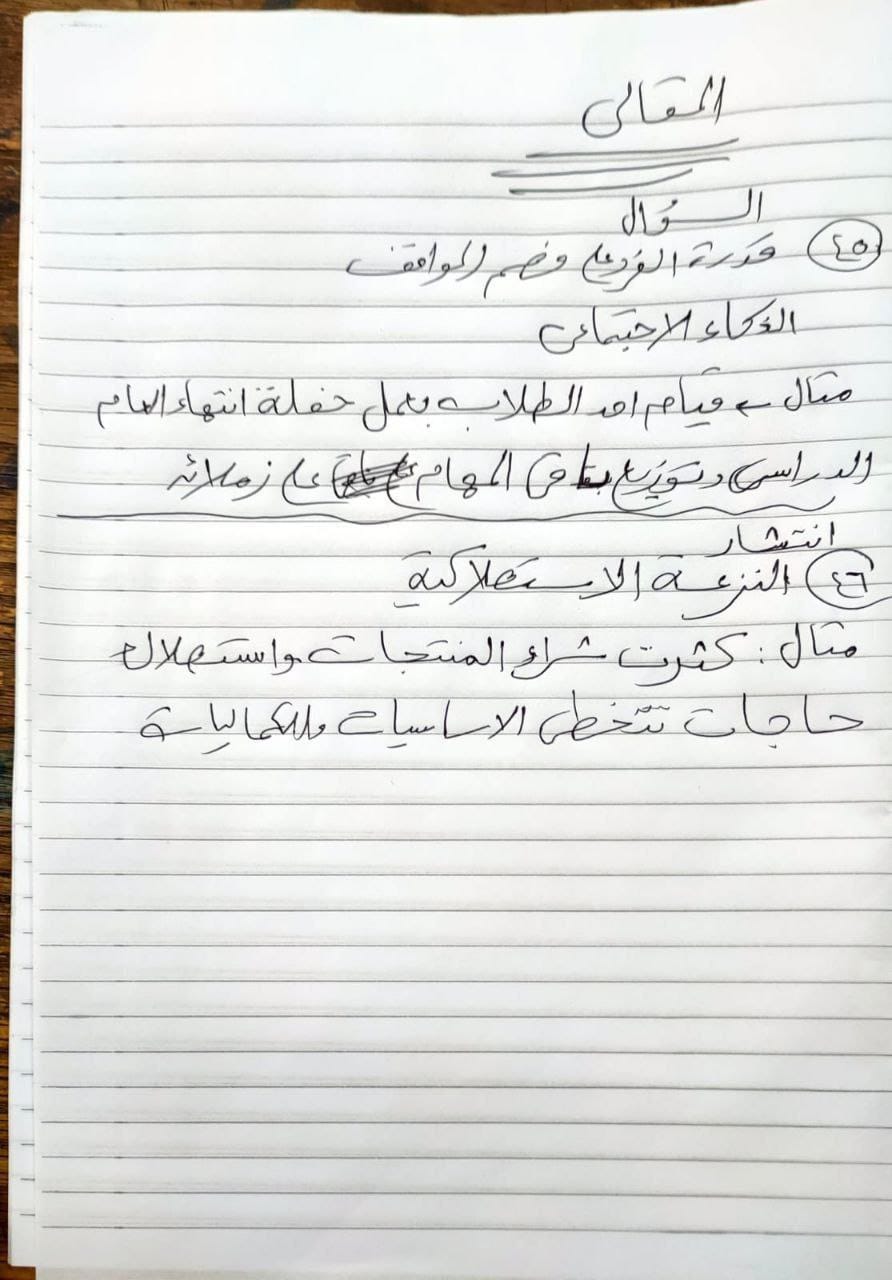 المقالى
السؤال
٤٥ قدرة الفرد على فهم المواقف
الذكاء الاجتماعى
مثال ← قيام احد الطلاب بعمل حفلة انتهاء العام
الدراسى وتوزيع باقى المهام على زملائه
انتشار
٤٦ النزعة الاستهلاكية
مثال : كثرت شراء المنتجات واستهلاك
حاجات تتخطى الاساسيات والكماليات